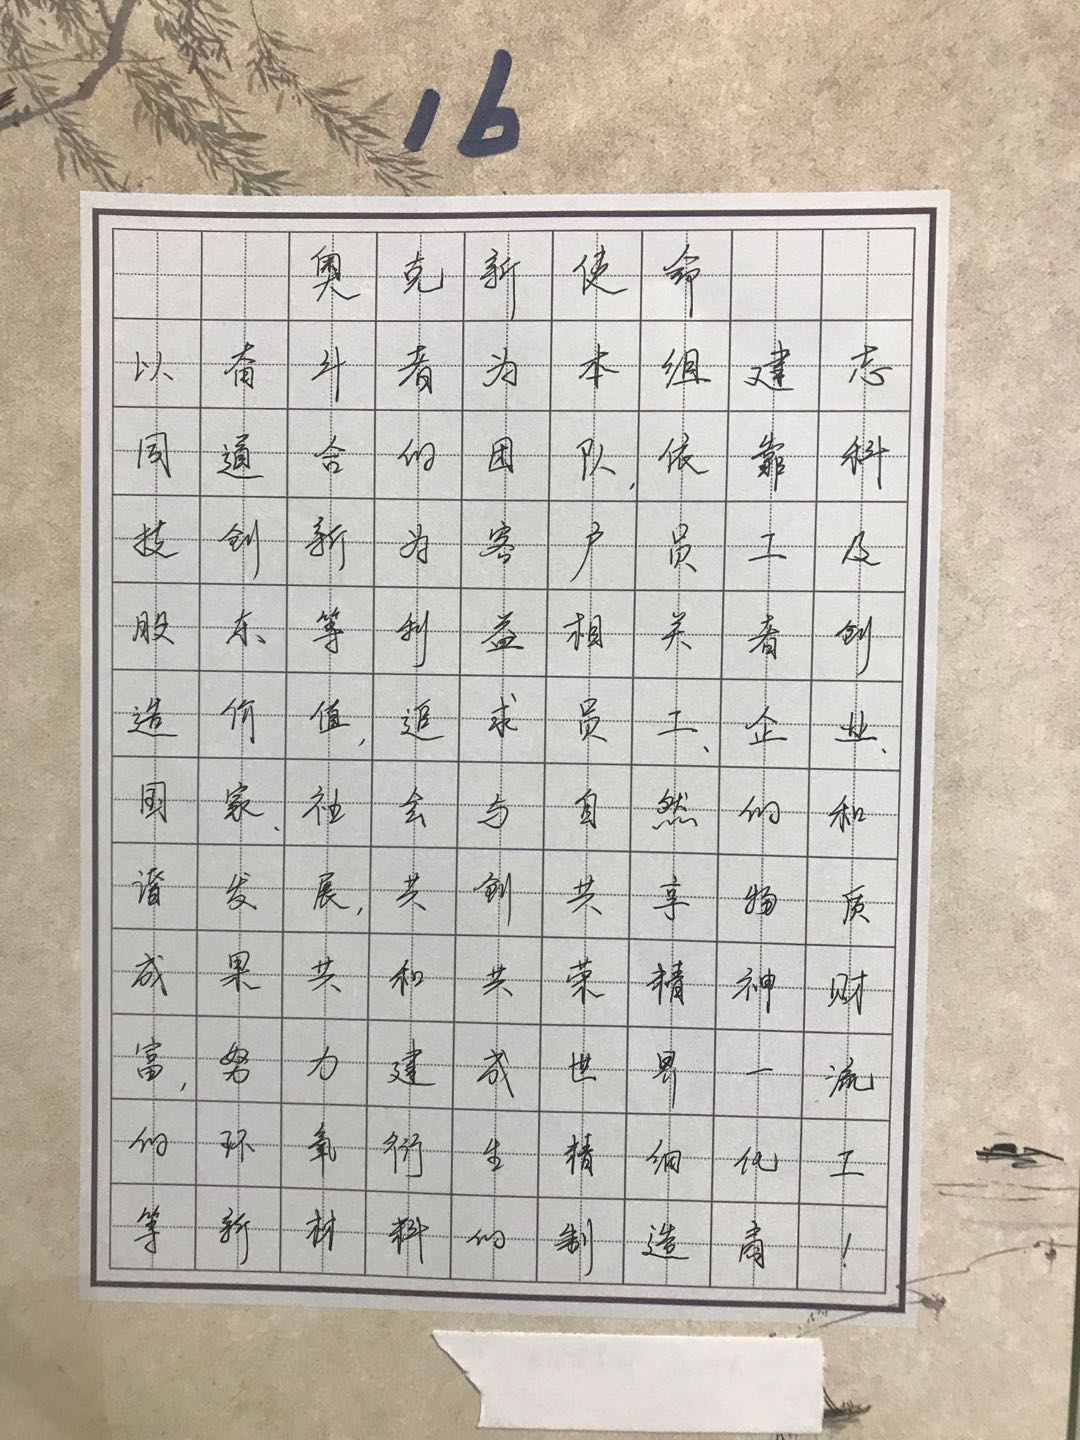 16
奥克新使命
以奋斗者为本组建志
同道合的团队,依靠科
技创新为客户员工及
股东等利益相关者创
造价值,追求员工、企业、
国家、社会与自然的和
谐发展,共创共享物质
成果共和共荣精神财
富,努力建成世界一流
的环氧衍生精细化工
等新材料的制造商!